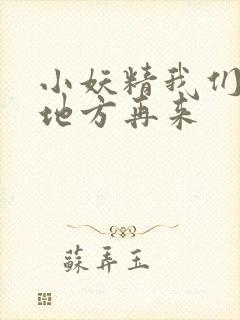 小妖精我们
地方再来
蘇弄玉